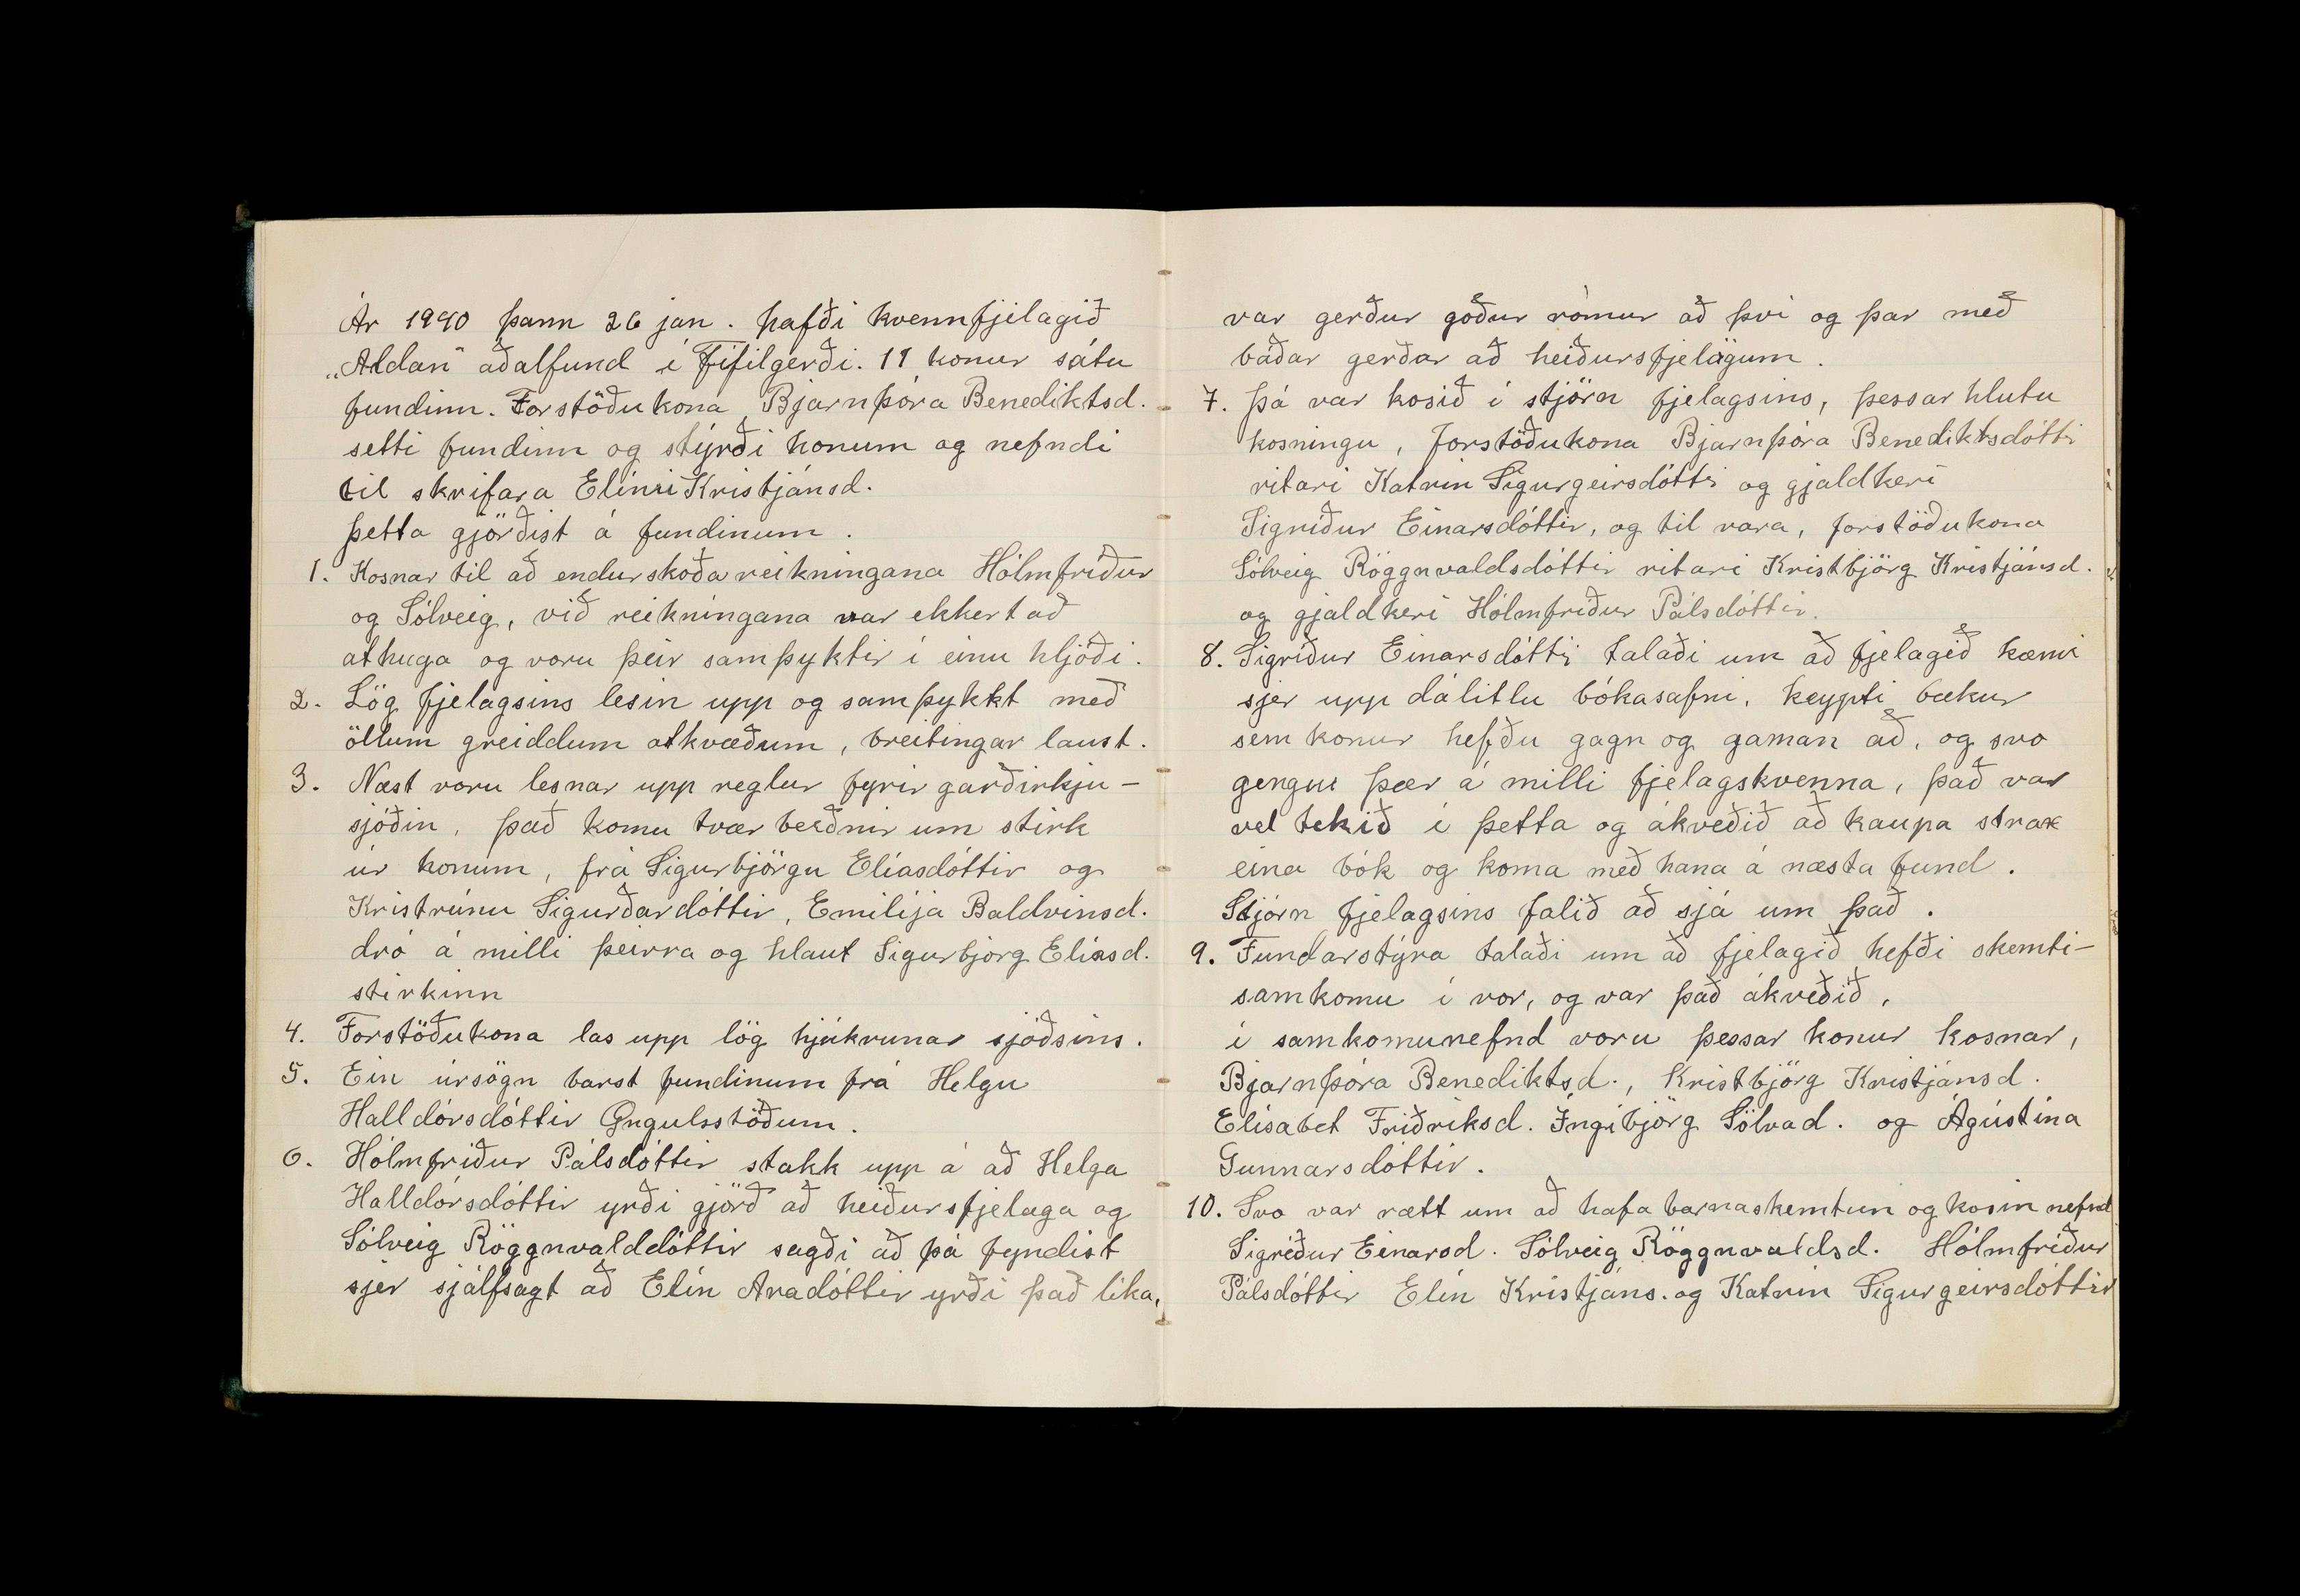 Ár 1940 þann 26 jan. hafði kvennfjelagið
„Aldan" aðalfund í Fífilgerði. 11 konur sátu
fundinn. Forstöðukona, Bjarnþóra Benediktsd.
setti fundinn og stýrði honum og nefndi
til skrifara Elínu Kristjánsd.
Þetta gjörðist á fundinum.
1. Kosnar til að endurskoða reikningana Hólmfríður
og Sólveig, við reikningana var ekkert að
athuga og voru þeir samþyktir í einu hljóði.
2. Lög fjelagsins lesin upp og samþykkt með
öllum greiddum atkvæðum, breitingar laust.
3. Næst voru lesnar upp reglur fyrir garðirkju-
sjóðin, það komu tvær beðnir um stirk
úr honum, frá Sigurbjörgu Elíasdóttir og
Kristrúnu Sigurðardóttir, Emilija Baldvinsd.
dró á milli þeirra og hlaut Sigurbjörg Elíasd.
stirkinn
4. Forstöðukona las upp lög hjúkrunar sjóðsins.
5. Ein úrsögn barst fundinum frá Helgu
Halldórsdóttir Öngulsstöðum.
6. Hólmfríður Pálsdóttir stakk upp á að Helga
Halldórsdóttir yrði gjörð að heiðursfjelaga og
Sólveig Röggnvalddóttir sagði að þá fyndist
sjer sjálfsagt að Elín Aradóttir yrði það líka,
var gerður góður rómur að því og þar með
báðar gerðar að heiðursfjelögum.
7. Þá var kosið í stjórn fjelagsins, þessar hlutu
kosningu, forstöðukona Bjarnþóra Benediktsdótti
ritari Katrín Sigurgeirsdóttir og gjaldkeri
Sigríður Einarsdóttir, og til vara, forstöðukona
Sólveig Röggnvaldsdóttir ritari Kristbjörg Kristjánsd.
og gjaldkeri Hólmfríður Pálsdóttir.
8. Sigríður Einarsdóttir talaði um að fjelagið kæmi
sjer upp dálitlu bókasafni, keypti bækur
sem konur hefðu gagn og gaman að, og svo
gengu þær á milli fjelagskvenna, það var
vel tekið í þetta og ákveðið að kaupa strax
eina bók og koma með hana á næsta fund.
Stjórn fjelagsins falið að sjá um það.
9. Fundarstýra talaði um að fjelagið hefði skemti-
samkomu í vor, og var það ákveðið,
í samkomunefnd voru þessar konur kosnar,
Bjarnþóra Benediktsd., Kristbjörg Kristjánsd.
Elísabet Friðriksd. Ingibjörg Sölvad. og Ágústína
Gunnarsdóttir.
10. Svo var rætt um að hafa barnaskemtun og kosin nefnd
Sigríður Einarsd. Sólveig Röggnvaldsd. Hólmfríður
Pálsdóttir Elín Kristjáns. og Katrín Sigurgeirsdóttir